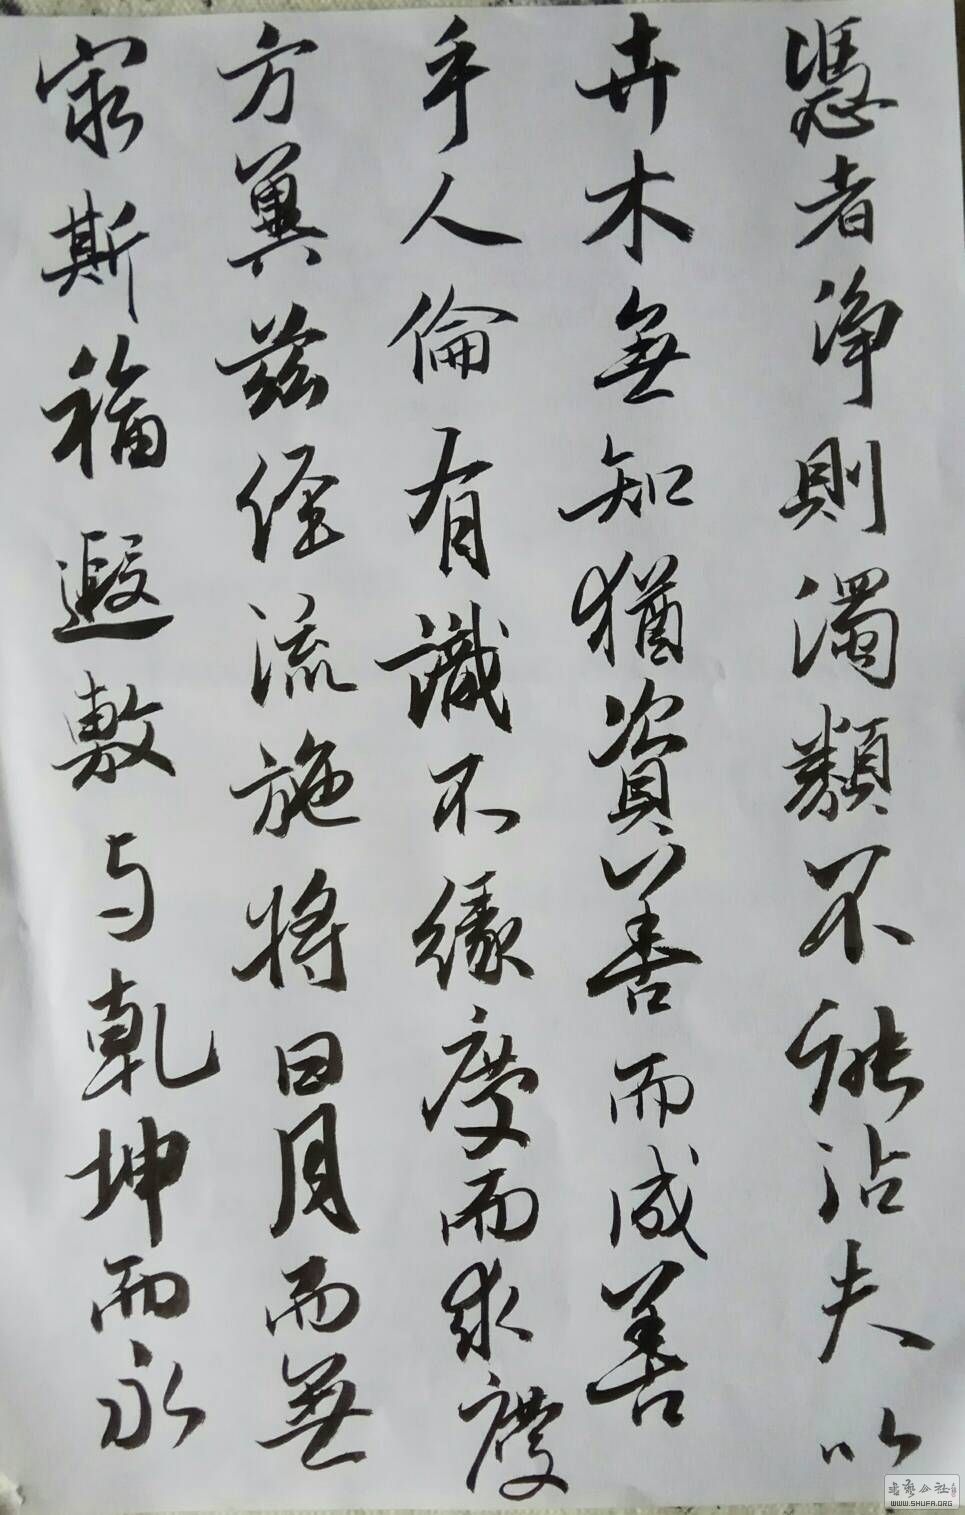 憑者净則濁類不能沾夫以
卉木無知猶資善而成善
乎人倫有識不緣慶而求慶
方冀兹經流施將日月而無
窮斯福遐敷与乾坤而永
WWW.SHUFA.ORG